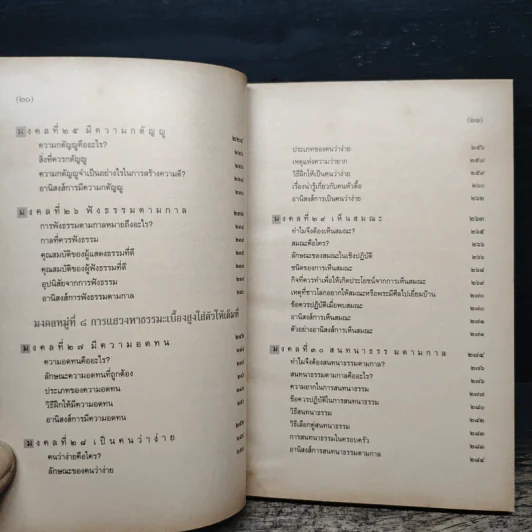 (๒๐)
มงคลที่ ๒๕ มีความกตัญญู ๒๒๔
ความกตัญญูคืออะไร?
สิ่งที่ควรกตัญญู
ความกตัญญูจำเป็นอย่างไรในการสร้างความดี?
อานิสงส์การมีความกตัญญู
มงคลที่ ๒๖ ฟังธรรมตามกาล
การฟังธรรมตามกาลหมายถึงอะไร?
กาลที่ควรฟังธรรม
คุณสมบัติของผู้แสดงธรรมที่ดี
คุณสมบัติของผู้ฟังธรรมที่ดี
อุปนิสัยจากการฟังธรรม
อานิสงส์การฟังธรรมตามกาล
มงคลหมู่ที่ ๘ การแสวงหาธรรมะเบื้องสูงใส่ตัวให้เต็มที่
มงคลที่ ๒๗ มีความอดทน
ความอดทนคืออะไร?
ลักษณะความอดทนที่ถูกต้อง
ประเภทของความอดทน
วิธีฝึกให้มีความอดทน
อานิสงส์การมีความอดทน
มงคลที่ ๒๘ เป็นคนว่าง่าย
คนว่าง่ายคือใคร?
ลักษณะของคนว่าง่าย
(๒๑)
ประเภทของคนว่าง่าย ๒๕๖
เหตุแห่งความว่ายาก ๒๕๗
วิธีฝึกให้เป็นคนว่าง่าย
เรื่องน่ารู้เกี่ยวกับคนหัวดื้อ ๒๖๐
อานิสงส์การเป็นคนว่าง่าย ๒๖๒
มงคลที่ ๒๙ เห็นสมณะ ๒๖๓
ทำไมจึงต้องเห็นสมณะ?
สมณะคือใคร?
ลักษณะของสมณะในเชิงปฏิบัติ
ชนิดของการเห็นสมณะ
กิจที่ควรทำเพื่อให้เกิดประโยชน์จากการเห็นสมณะ
เหตุที่ชาวโลกอยากให้สมณะหรือพระมีศีลไปเยี่ยมบ้าน
ข้อควรปฏิบัติเมื่อพบสมณะ
อานิสงส์การเห็นสมณะ
ตัวอย่างอานิสงส์การเห็นสมณะ
มงคลที่ ๓๐ สนทนาธรรมตามกาล ๒๗๔
ทำไมจึงต้องสนทนาธรรมตามกาล?
สนทนาธรรมตามกาลคืออะไร?
ความยากในการสนทนาธรรม
ข้อควรปฏิบัติในการสนทนาธรรม
วิธีสนทนาธรรม
วิธีเลือกคู่สนทนาธรรม
การสนทนาธรรมในครอบครัว
อานิสงส์การสนทนาธรรมตามกาล ๒๘๔